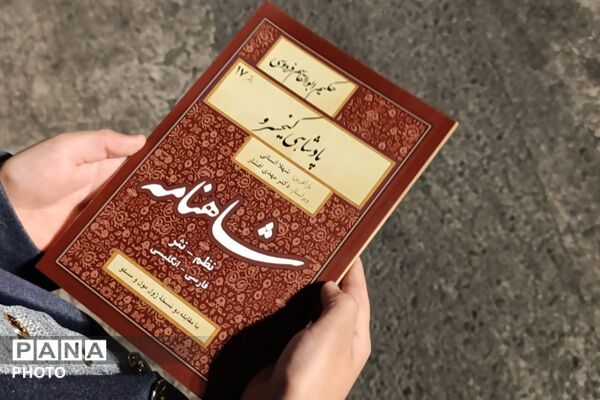 حکیم ابوالقاسم فردوسی
دفتر ۱۷
پادشاهی کیخسرو
بازآفرین: شهلا انسانی
ویراستار: دکتر مهدی افشار
شاهنامه
نظم - نثر
فارسی - انگلیسی
با مقابله دو نسخهٔ ژول مول و مسکو
PANA
PHOTO